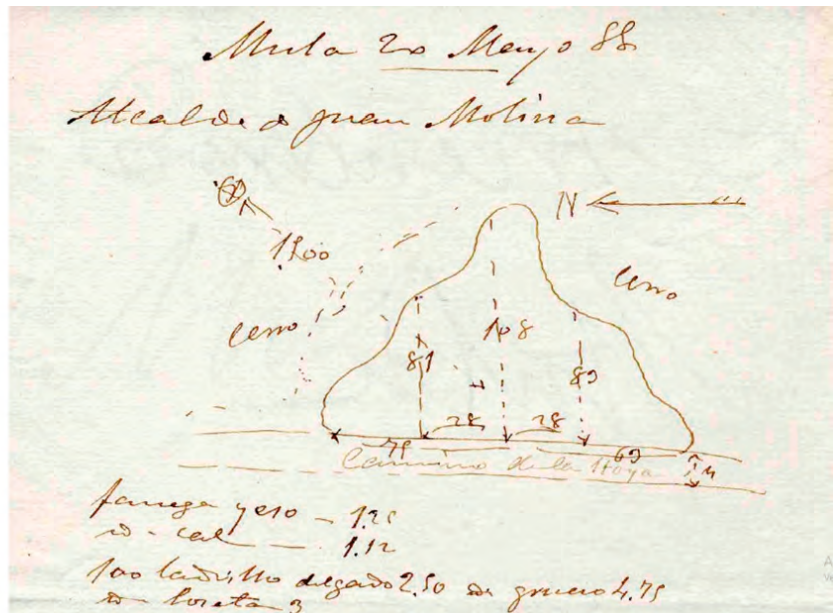 Mula 20 Mayo 88
Alcalde D Juan Molina
1500
N
Cerro
Cerro
108
81
83
28
28
75
63
Camino de la Hoya
fanega yeso - 1.25
id - cal - 1.12
100 ladrillo delgado 2.50 id grueso 4.75
id loseta 3